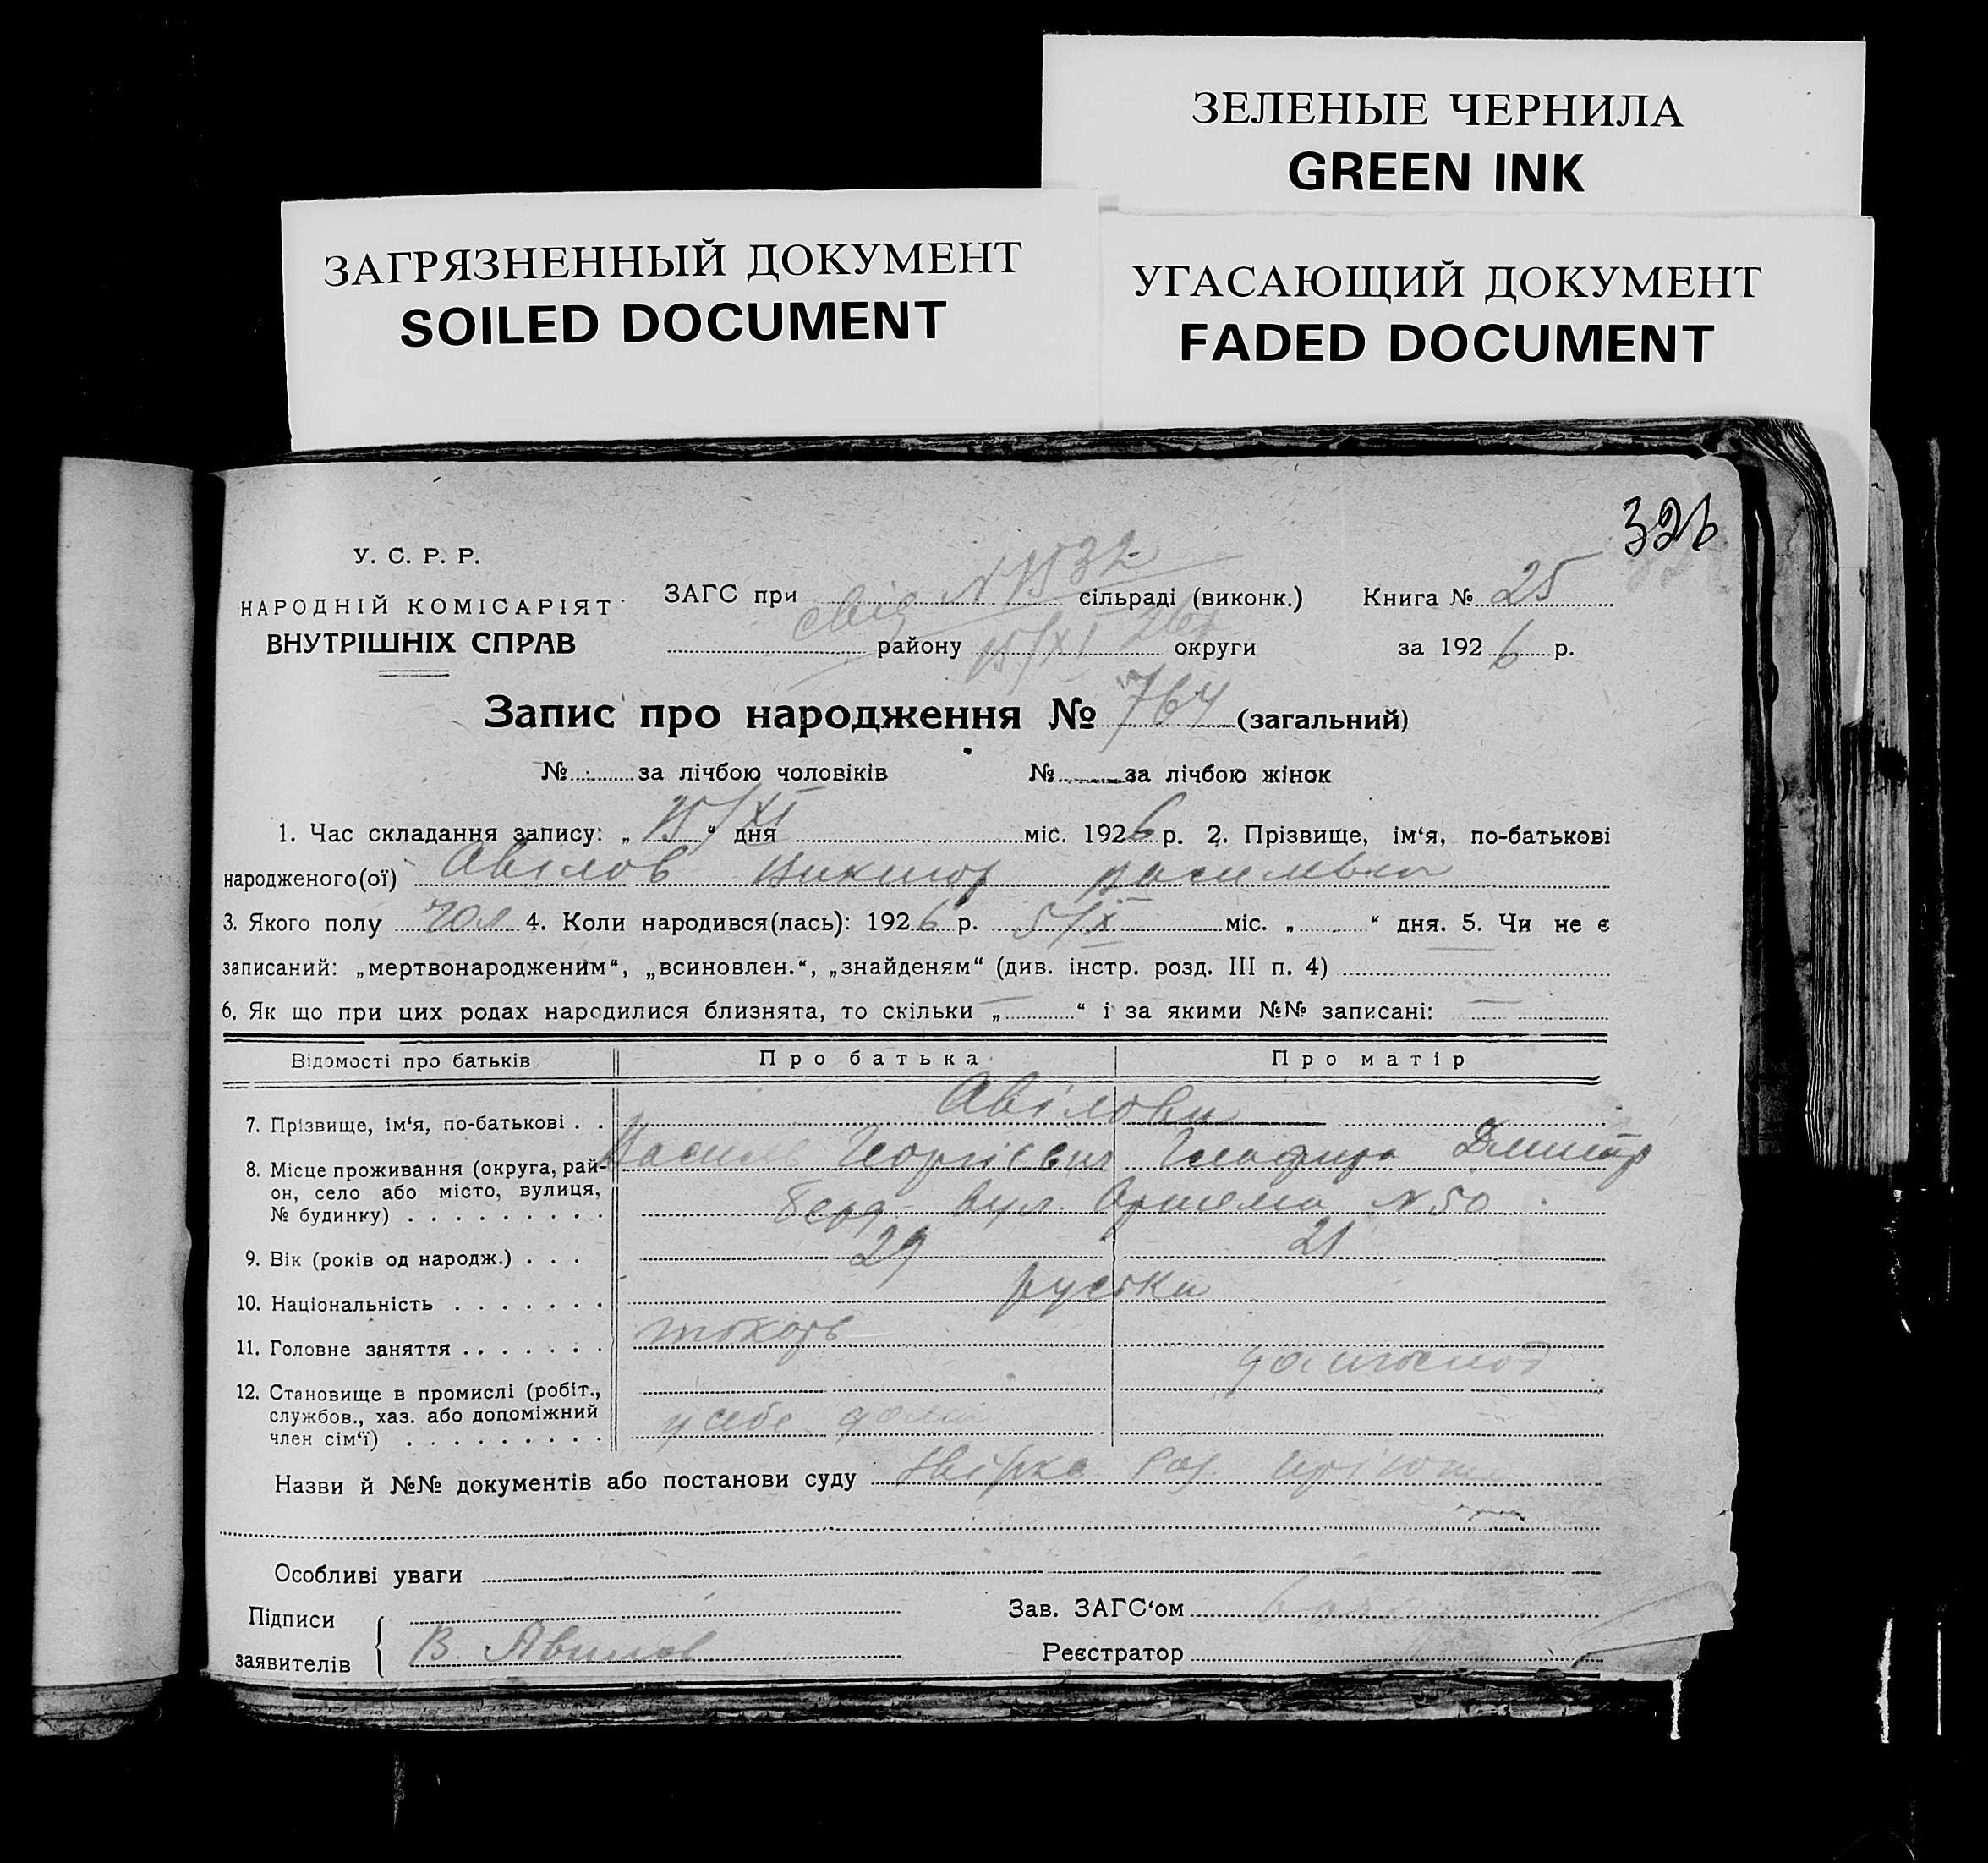 ЗЕЛЕНЫЕ ЧЕРНИЛА
GREEN INK
ЗАГРЯЗНЕННЫЙ ДОКУМЕНТ
SOILED DOCUMENT
УГАСАЮЩИЙ ДОКУМЕНТ
FADED DOCUMENT
326
У. С. Р. Р.
НАРОДНІЙ КОМІСАРІЯТ
ВНУТРІШНІХ СПРАВ
свід N 1532
15/XI 26р
ЗАГС при сільраді (виконк.)
району округи
Книга № 25
за 1926 р.
Запис про народження № 764 (загальний)
№ за лічбою чоловіків № за лічбою жінок
1. Час складання запису: „15/XI“ дня міс. 1926 р. 2. Прізвище, ім‘я, по-батькові
народженого(ої) Авілов Виктор
3. Якого полу чол 4. Коли народився(лась): 1926 р. 5/X міс. „ “ дня. 5. Чи не є
записаний: „мертвонародженим“, „всиновлен.“, „знайденям“ (див. інстр. розд. III п. 4)
6. Як що при цих родах народилися близнята, то скільки „ — “ і за якими №№ записані: —
Відомості про батьків Про батька Про матір
7. Прізвище, ім‘я, по-батькові . . Авілови
Василь Георгієвич Глафира Дмитр
8. Місце проживання (округа, рай-
он, село або місто, вулиця,
№ будинку) . . . . . . . . . Берд. вул. Артема N 50
9. Вік (років од народж.) . . . 29 21
10. Національність . . . . . . . руські
11. Головне заняття . . . . . . . токарь
12. Становище в промислі (робіт.,
службов., хаз. або допоміжний
член сім‘ї) . . . . . . . . . у себе дома
Назви й №№ документів або постанови суду
Особливі уваги
Підписи
заявителів В. Авилов
Зав. ЗАГС‘ом
Реєстратор